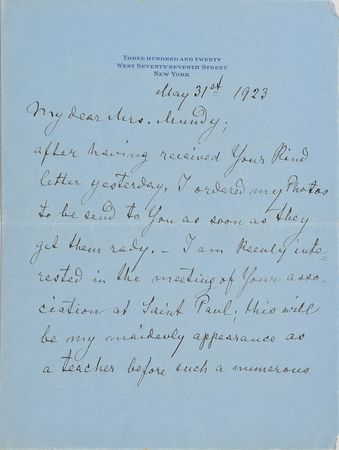 THREE HUNDRED AND TWENTY
WEST SEVENTY-SEVENTH STREET
NEW YORK
May 31st 1923
My dear Mrs. Mundy;
after having received Your Kind
letter yesterday, I ordered my Photos
to be send to You as soon as they
get them rady. – I am Keenly inte-
rested in the meeting of Your asso-
ciation at Saint Paul; this will
be my maidenly appearance as
a teacher before such a numerous